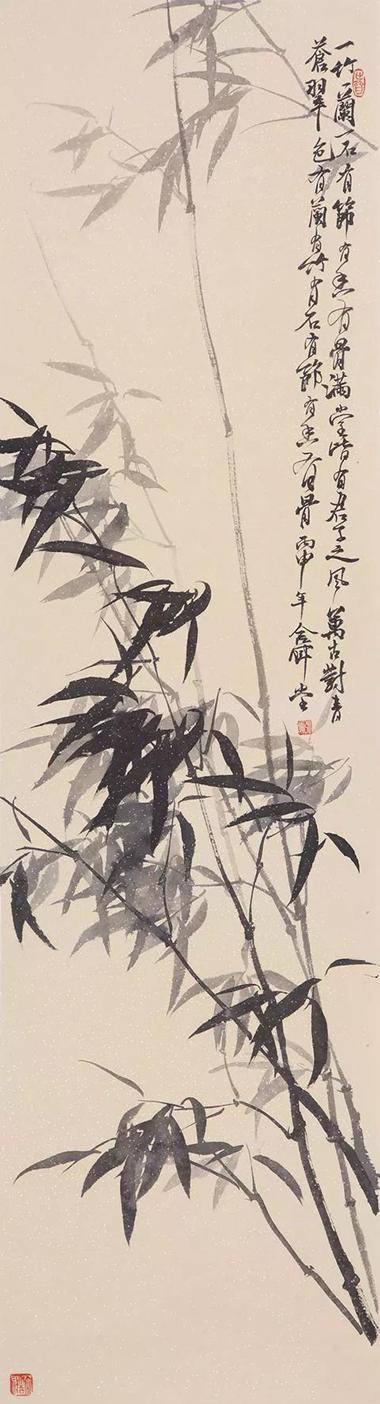 一竹一蘭一石有節有香有骨滿堂皆有君子之風萬古對青
蒼翠色有蘭有竹有石有節有香有骨丙申年堂